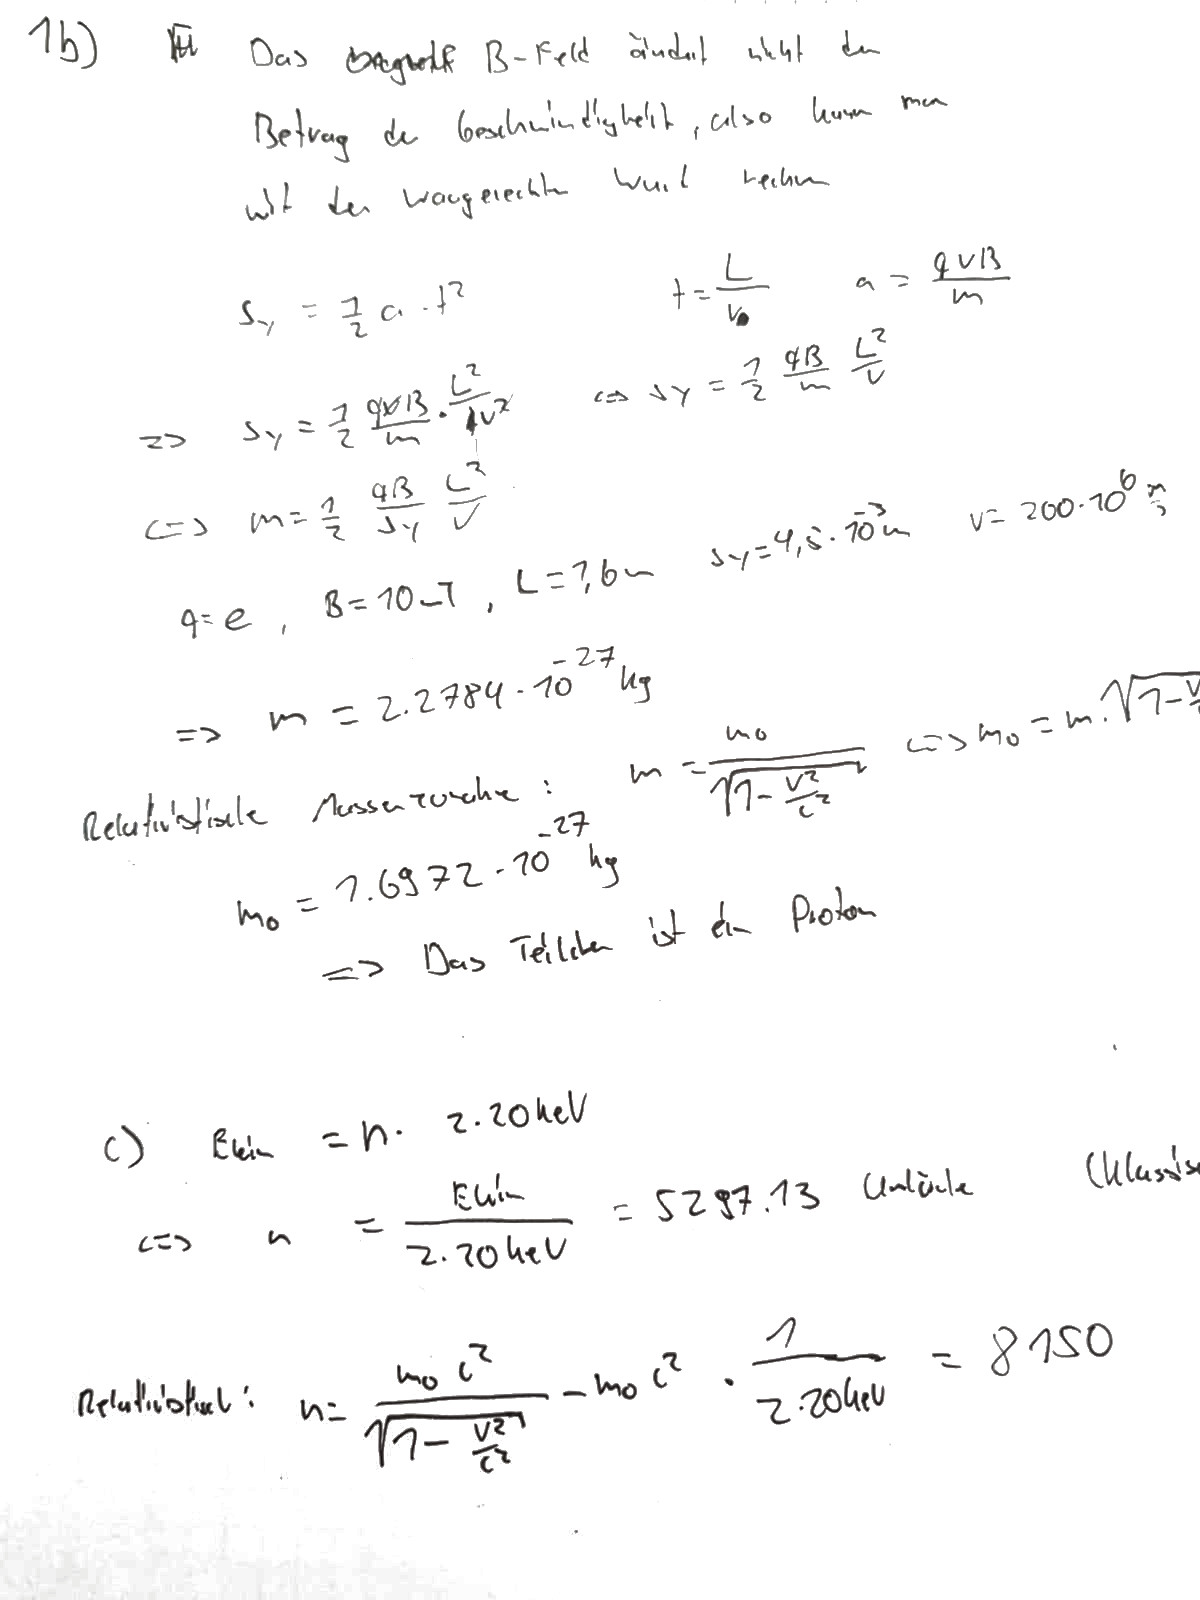 1b) Das B-Feld ändert nicht den
Betrag der Geschwindigkeit, also kann man
mit den waagerechten Wurf rechnen
s_y = 1/2 a · t² t = L/v₀ a = qvB/m
=> s_y = 1/2 qvB/m · L²/v² <=> s_y = 1/2 qB/m L²/v
<=> m = 1/2 qB/s_y L²/v
q = e, B = 10mT, L = 1,6m s_y = 4,5 · 10⁻³m v = 200 · 10⁶ m/s
=> m = 2.2784 · 10⁻²⁷ kg
Relativistische Massenzunahme: m = m₀/√(1 - v²/c²) <=> m₀ = m · √(1 - v
m₀ = 1.6972 · 10⁻²⁷ kg
=> Das Teilchen ist ein Proton
c) Ekin = n · 2.20keV
<=> n = Ekin/2.20keV = 5297.13 Umläufe (Klassisc
Relativistisch: n = m₀c²/√(1 - v²/c²) - m₀c² · 1/2.20keV = 8150